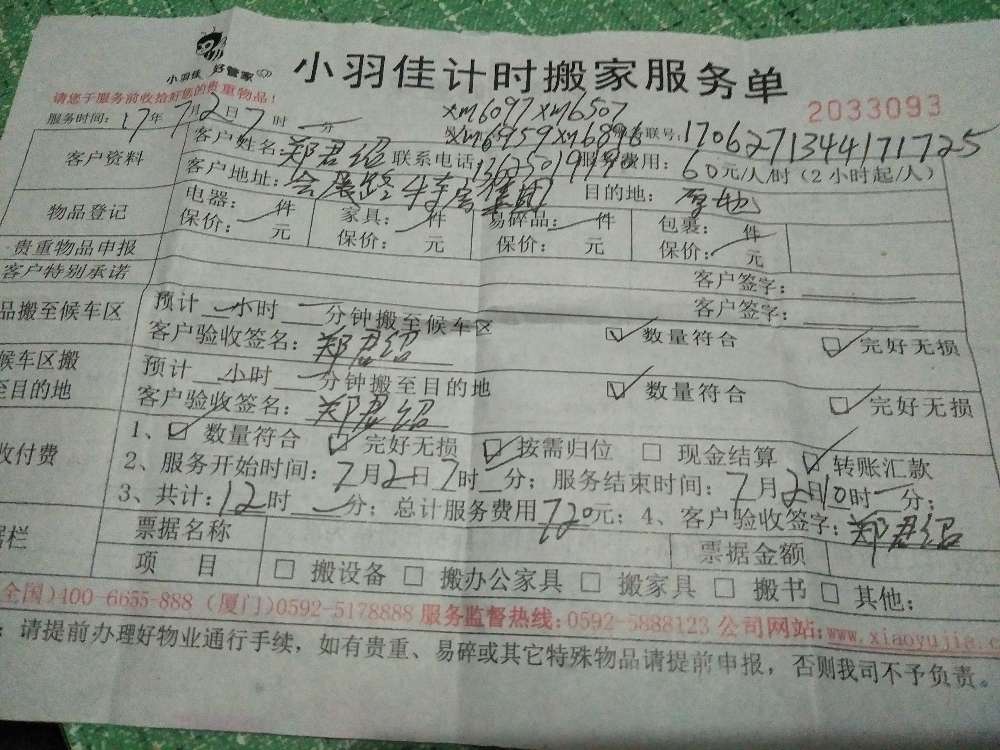 小羽佳 好管家
小羽佳计时搬家服务单
请您于服务前收拾好您的贵重物品!
2033093
服务时间: 17年7月2日7时 分
xm6097 xm6507
xm6959 xm6896 联号: 1706271344171725
客户资料
客户姓名: 郑君绍 联系电话: 服务费用: 60元/人/时 (2小时起/人)
客户地址: 会展路 目的地: 原地
物品登记
电器: 件 家具: 件 易碎品: 件 包裹: 件
保价: 元 保价: 元 保价: 元 保价: 元
贵重物品申报 客户签字:
客户特别承诺 客户签字:
品搬至候车区
预计 小时 分钟搬至候车区
客户验收签名: 郑君绍 ☑ 数量符合 ☑ 完好无损
候车区搬
至目的地
预计 小时 分钟搬至目的地
客户验收签名: 郑君绍 ☑ 数量符合 ☑ 完好无损
收付费
1、☑ 数量符合 ☑ 完好无损 ☑ 按需归位 □ 现金结算 ☑ 转账汇款
2、服务开始时间: 7月2日7时 分; 服务结束时间: 7月2日10时 分;
3、共计: 12时 分; 总计服务费用720元; 4、客户验收签字: 郑君绍
据栏
票据名称 票据金额
项 目 □ 搬设备 □ 搬办公家具 □ 搬家具 □ 搬书 □ 其他:
全国)400-6655-888 (厦门)0592-5178888 服务监督热线:0592-5888123 公司网站:www.xiaoyujia.c
: 请提前办理好物业通行手续, 如有贵重、易碎或其它特殊物品请提前申报, 否则我司不予负责。